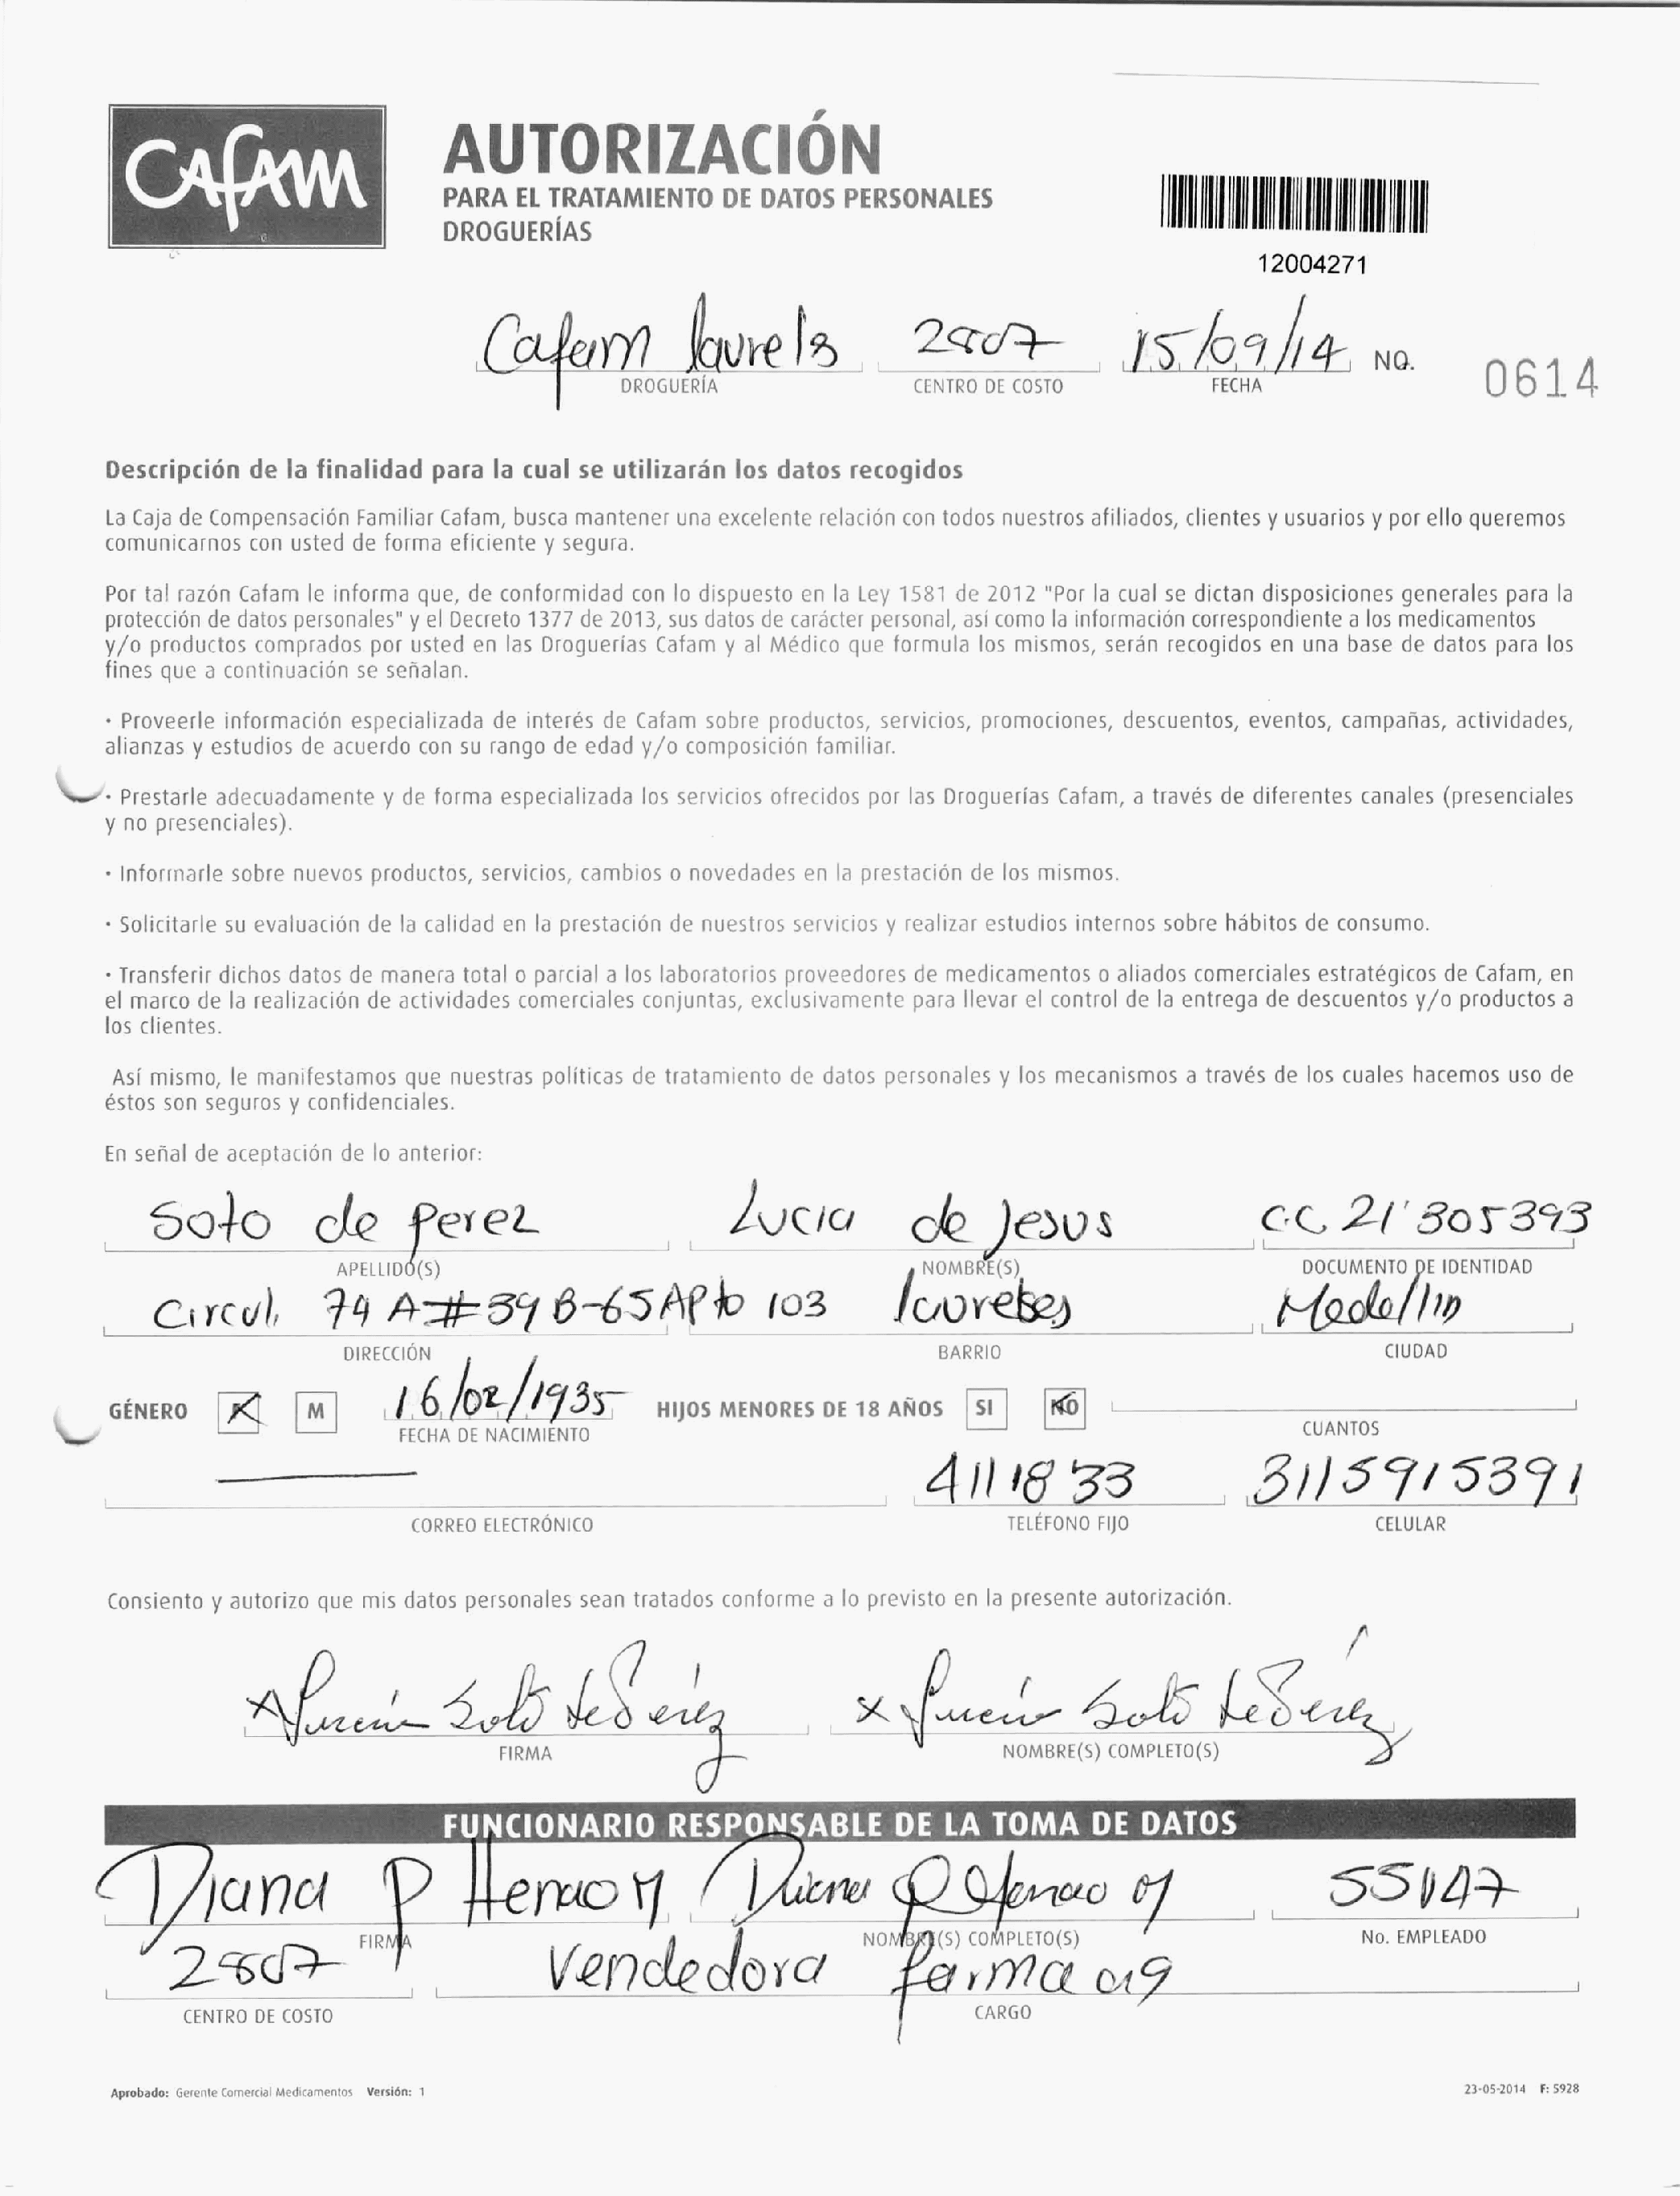 Cafam
AUTORIZACIÓN
PARA EL TRATAMIENTO DE DATOS PERSONALES
DROGUERÍAS
12004271
Cafam laurels 2807 15/09/14 NO. 0614
DROGUERÍA CENTRO DE COSTO FECHA
Descripción de la finalidad para la cual se utilizarán los datos recogidos
La Caja de Compensación Familiar Cafam, busca mantener una excelente relación con todos nuestros afiliados, clientes y usuarios y por ello queremos
comunicarnos con usted de forma eficiente y segura.
Por tal razón Cafam le informa que, de conformidad con lo dispuesto en la Ley 1581 de 2012 "Por la cual se dictan disposiciones generales para la
protección de datos personales" y el Decreto 1377 de 2013, sus datos de carácter personal, así como la información correspondiente a los medicamentos
y/o productos comprados por usted en las Droguerías Cafam y al Médico que formula los mismos, serán recogidos en una base de datos para los
fines que a continuación se señalan.
· Proveerle información especializada de interés de Cafam sobre productos, servicios, promociones, descuentos, eventos, campañas, actividades,
alianzas y estudios de acuerdo con su rango de edad y/o composición familiar.
· Prestarle adecuadamente y de forma especializada los servicios ofrecidos por las Droguerías Cafam, a través de diferentes canales (presenciales
y no presenciales).
· Informarle sobre nuevos productos, servicios, cambios o novedades en la prestación de los mismos.
· Solicitarle su evaluación de la calidad en la prestación de nuestros servicios y realizar estudios internos sobre hábitos de consumo.
· Transferir dichos datos de manera total o parcial a los laboratorios proveedores de medicamentos o aliados comerciales estratégicos de Cafam, en
el marco de la realización de actividades comerciales conjuntas, exclusivamente para llevar el control de la entrega de descuentos y/o productos a
los clientes.
Así mismo, le manifestamos que nuestras políticas de tratamiento de datos personales y los mecanismos a través de los cuales hacemos uso de
éstos son seguros y confidenciales.
En señal de aceptación de lo anterior:
Soto de perez Lucia de Jesus C.C. 21'305393
APELLIDO(S) NOMBRE(S) DOCUMENTO DE IDENTIDAD
Circul. 74 A # 39 B-65 Apto 103 laureles Medellin
DIRECCIÓN BARRIO CIUDAD
GÉNERO M 16/02/1935 HIJOS MENORES DE 18 AÑOS SI NO
FECHA DE NACIMIENTO CUANTOS
4111833 3115915391
CORREO ELECTRÓNICO TELÉFONO FIJO CELULAR
Consiento y autorizo que mis datos personales sean tratados conforme a lo previsto en la presente autorización.
x Lucía Soto de Pérez x Lucía Soto de Pérez
FIRMA NOMBRE(S) COMPLETO(S)
FUNCIONARIO RESPONSABLE DE LA TOMA DE DATOS
Diana P Henao M Diana P Henao M 55147
FIRMA NOMBRE(S) COMPLETO(S) No. EMPLEADO
2807 Vendedora farma
CENTRO DE COSTO CARGO
Aprobado: Gerente Comercial Medicamentos Versión: 1 23-05-2014 F: 5928